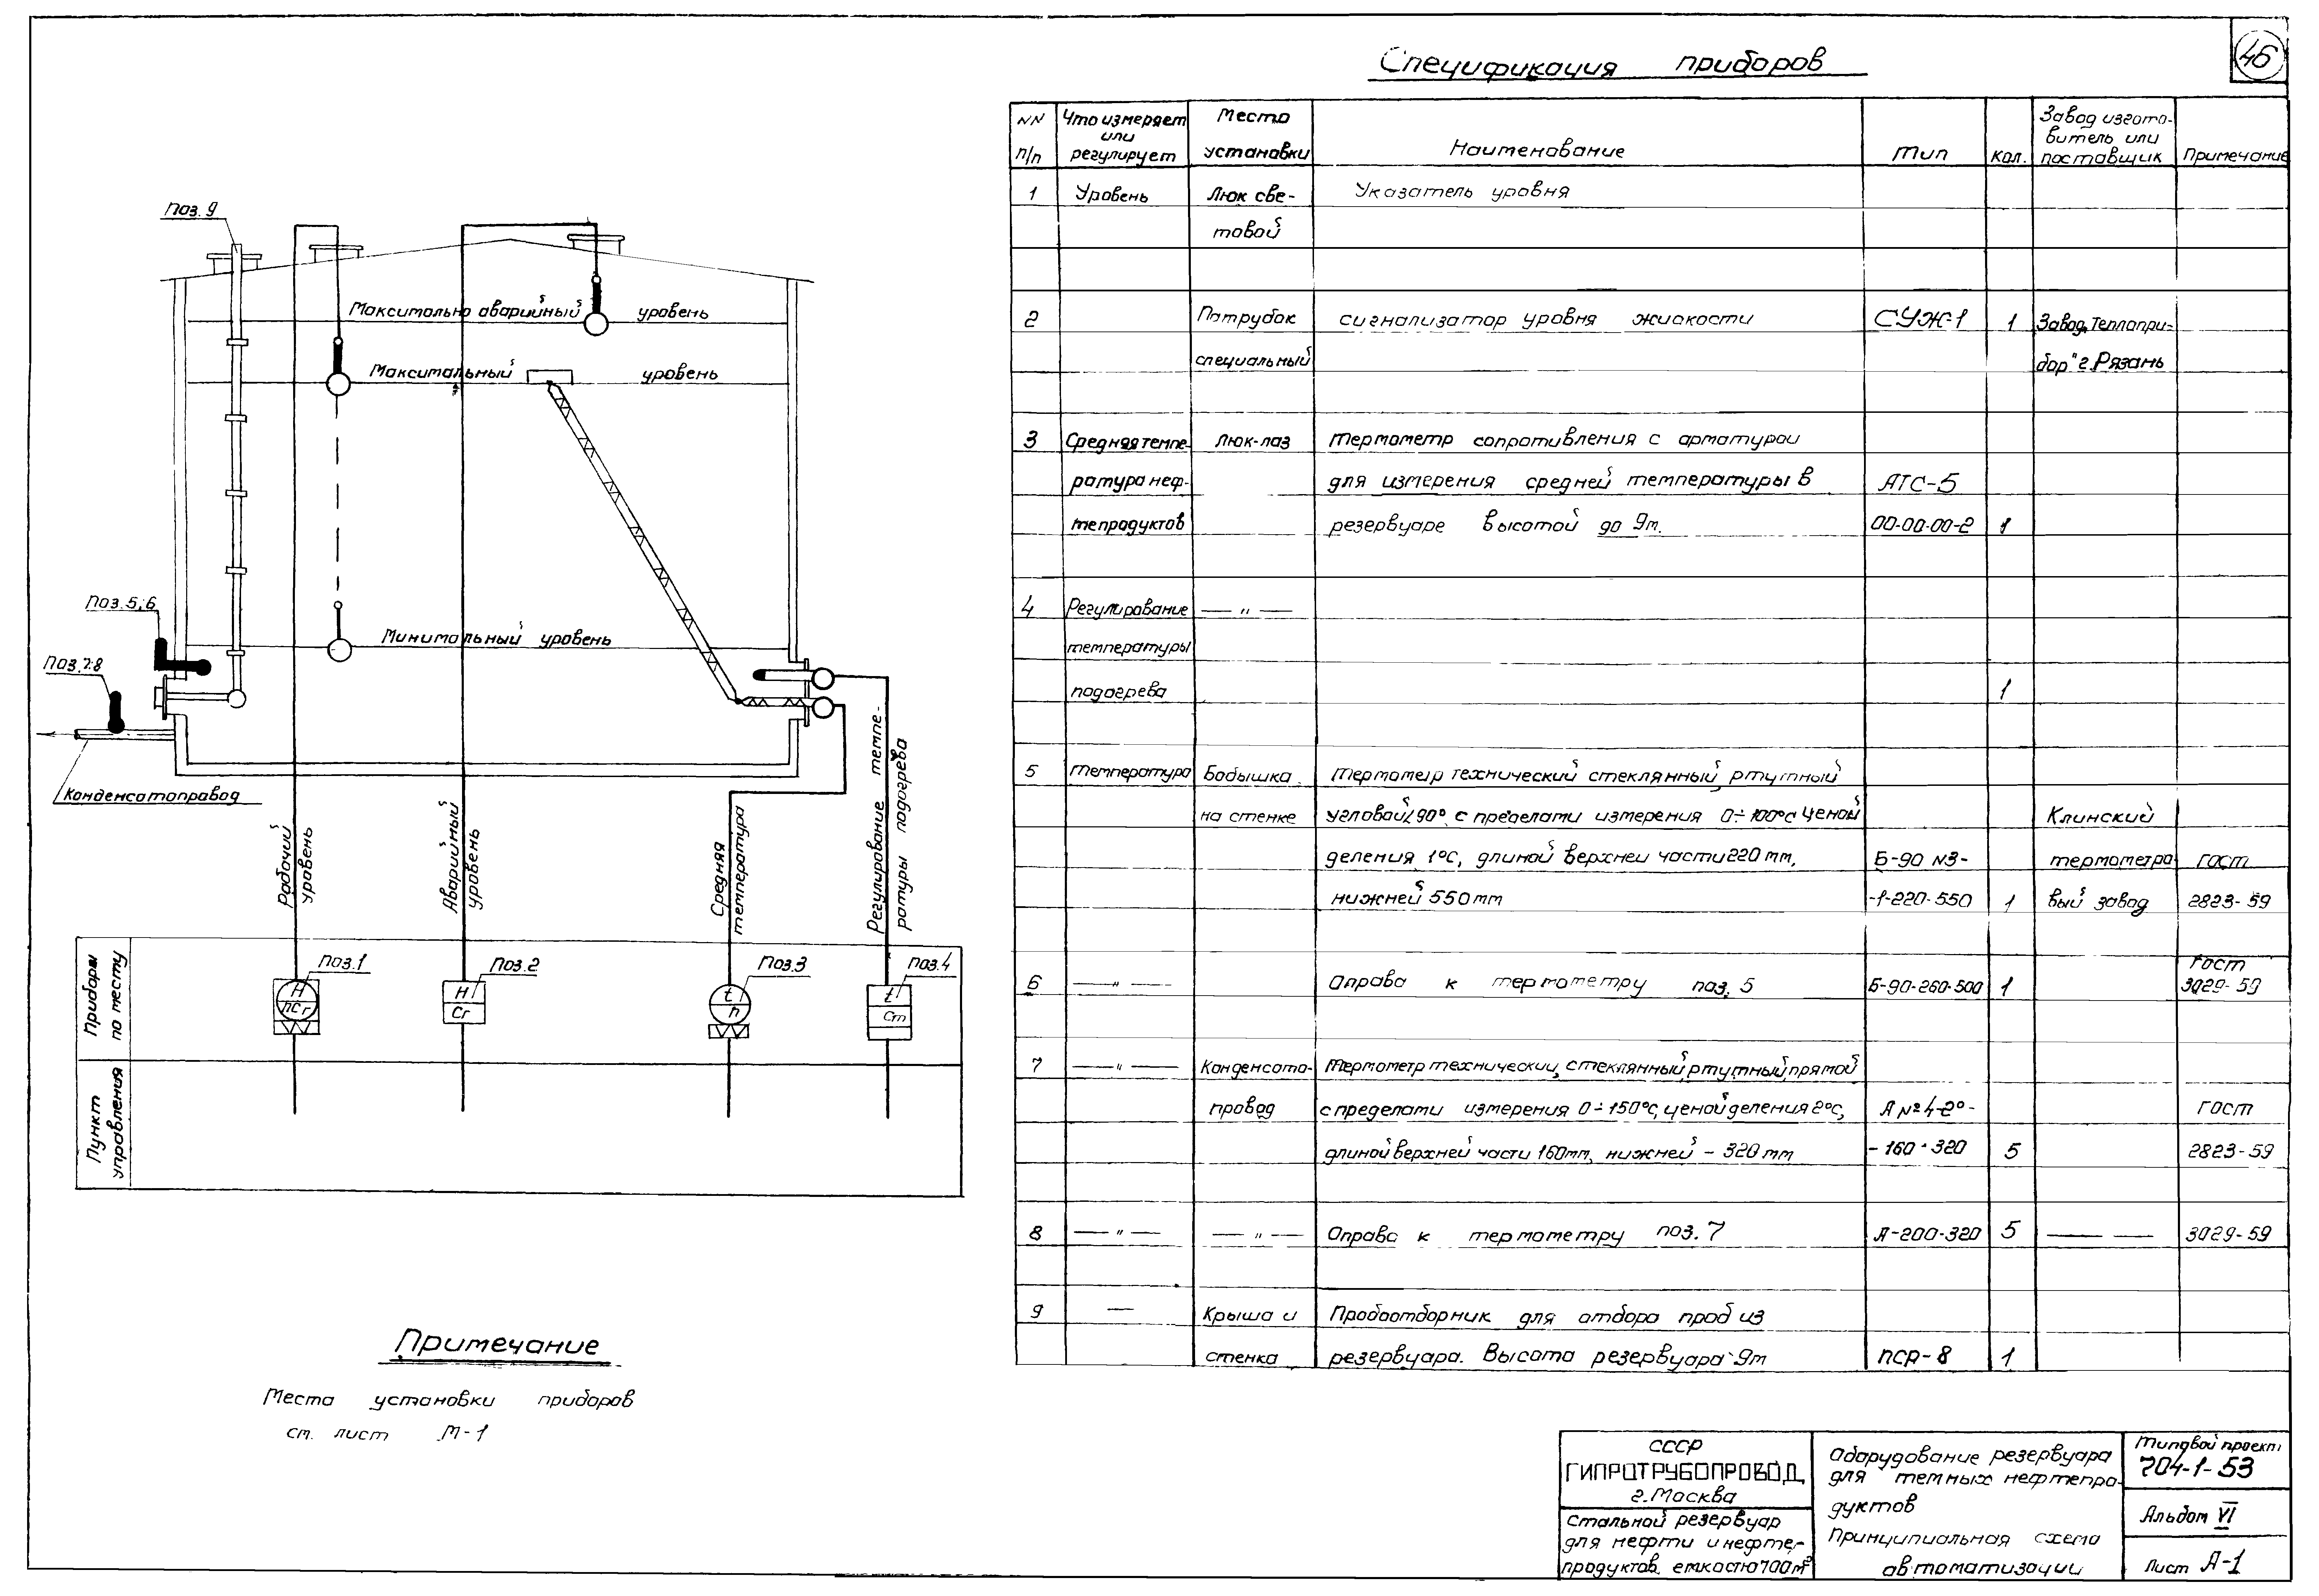 46
Спецификация приборов
NN п/п
Что измеряет или регулирует
Место установки
Наименование
Тип
Кол.
Завод изготовитель или поставщик
Примечание
1 Уровень Люк све- Указатель уровня
товой
2 Патрубок сигнализатор уровня жидкости СУЖ-1 1 Завод „Теплопри-
специальный бор" г. Рязань
3 Средняя темпе- Люк-лаз Термометр сопротивления с арматурой
ратура неф- для измерения средней температуры в АТС-5
тепродуктов резервуаре высотой до 9м. 00-00-00-2 1
4 Регулирование — " —
температуры
подогрева 1
5 Температура Бобышка Термометр технический стеклянный ртутный
на стенке угловой ∠90° с пределами измерения 0÷100°С Ценой Клинский
деления 1°С, длиной верхней части 220 мм, Б-90 №3- термометро ГОСТ
нижней 550 мм -1-220-550 1 вый завод 2823-59
6 — " — Оправа к термометру поз. 5 Б-90-260-500 1 ГОСТ 3029-59
7 — " — Конденсато- Термометр технический, стеклянный, ртутный, прямой
провод с пределами измерения 0÷150°С, ценой деления 2°С, А №4-2°- ГОСТ
длиной верхней части 160мм, нижней - 320 мм -160-320 5 2823-59
8 — " — — " — Оправа к термометру поз. 7 А-200-320 5 — — 3029-59
9 — Крыша и Пробоотборник для отбора проб из
стенка резервуара. Высота резервуара-9м ПСР-8 1
Поз. 9
Максимально аварийный уровень
Максимальный уровень
Поз. 5; 6
Минимальный уровень
Поз. 7; 8
Конденсатопровод
Рабочий уровень
Аварийный уровень
Средняя температура
Регулирование темпе-
ратуры подогрева
Приборы по месту
Поз. 1
Поз. 2
Поз. 3
Поз. 4
Н
пс г
Н
Сг
t
п
t
Ст
Пункт управления
Примечание
Места установки приборов
см. лист М-1
СССР
ГИПРОТРУБОПРОВОД
г. Москва
Стальной резервуар
для нефти и нефте-
продуктов емкостью 700 м³
Оборудование резервуара
для темных нефтепро-
дуктов
Принципиальная схема
автоматизации
Типовой проект
704-1-53
Альбом VI
Лист А-1